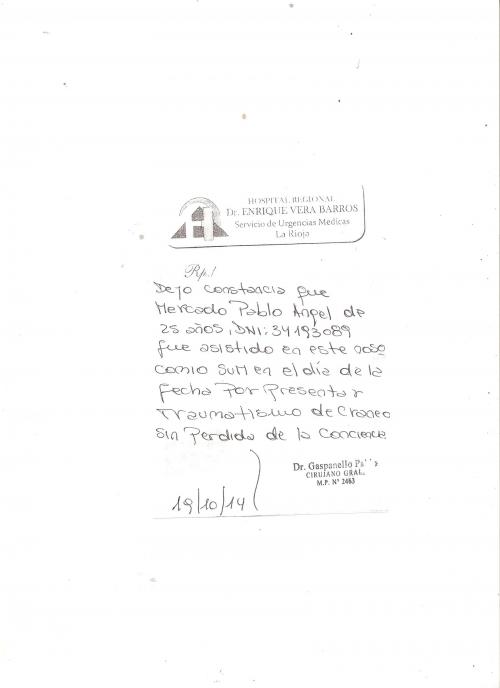 HOSPITAL REGIONAL
Dr. ENRIQUE VERA BARROS
Servicio de Urgencias Medicas
La Rioja
Rp./
Dejo constancia que
Mercado Pablo Angel de
25 años, DNI: 34193089
fue asistido en este noso
comio SUM en el día de la
fecha Por Presentar
Traumatismo de Craneo
sin Perdida de la
Dr. Gaspanello
CIRUJANO GRAL.
M.P. N° 2463
19/10/14